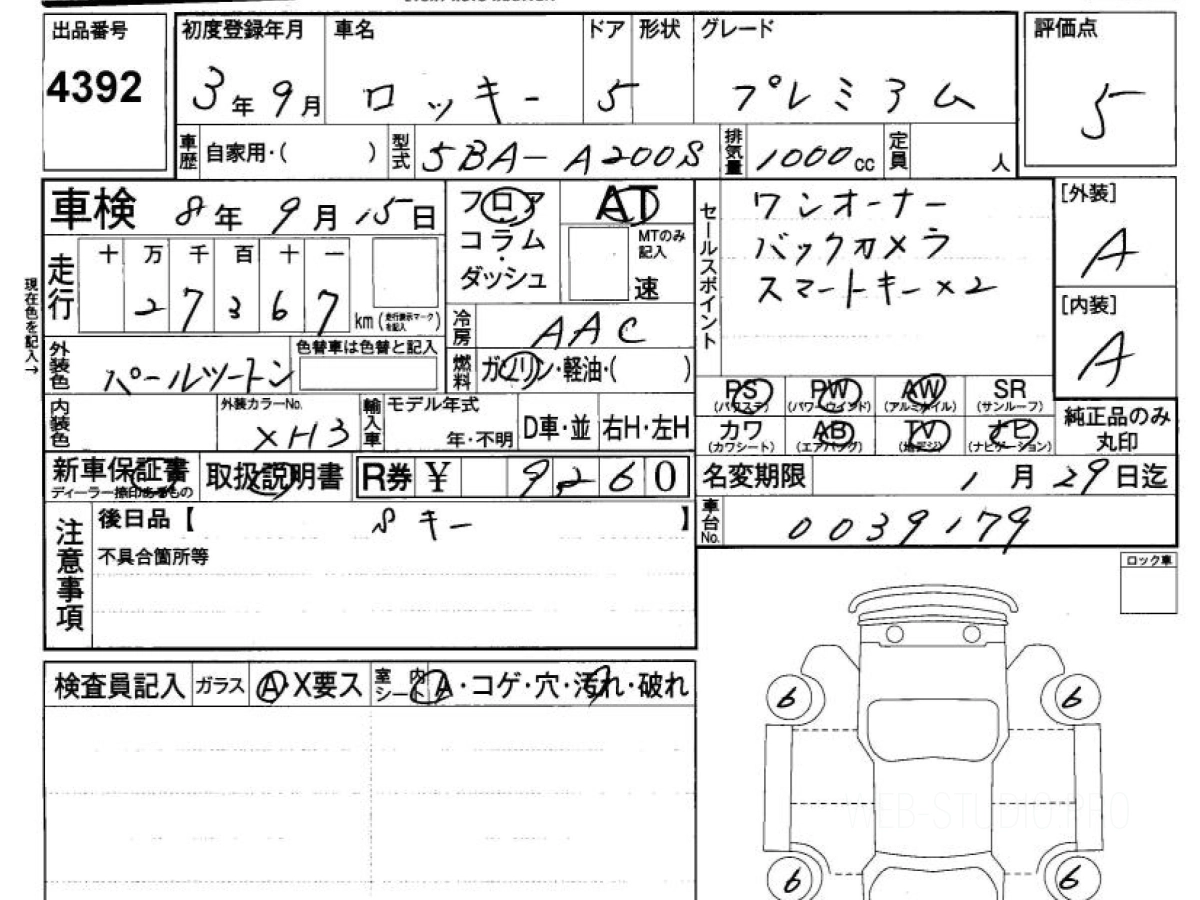 出品番号 初度登録年月 車名 ドア 形状 グレード 評価点
4392 3年9月 ロッキー 5 プレミアム 5
車歴 自家用・( ) 型式 5BA-A200S 排気量 1000cc 定員 人
車検 8年9月15日 フロア AT セールスポイント ワンオーナー [外装]
コラム・ MTのみ記入 バックカメラ A
走行 十万千百十一 ダッシュ 速 スマートキー×2
27367 km(走行表示マークを記入) [内装]
現在色を記入→ 冷房 AAC A
外装色 パールツートン 色替車は色替と記入 燃料 ガソリン・軽油・( )
PS(パワステ) PW(パワーウインド) AW(アルミホイル) SR(サンルーフ)
内装色 外装カラーNo. XH3 輸入車 モデル年式 年・不明 D車・並 右H・左H カワ(カワシート) AB(エアバッグ) TV(地デジ) ナビ(ナビゲーション) 純正品のみ丸印
新車保証書 ディーラー捺印あるもの 取扱説明書 R券 ¥ 9,260 名変期限 1月29日迄
注意事項 後日品【 Sキー 】 車台No. 0039179
不具合箇所等
ロック車
検査員記入 ガラス A・X要ス 室内シート A・コゲ・穴・汚れ・破れ
6 6
WEB-STUDIO.PRO
6 6